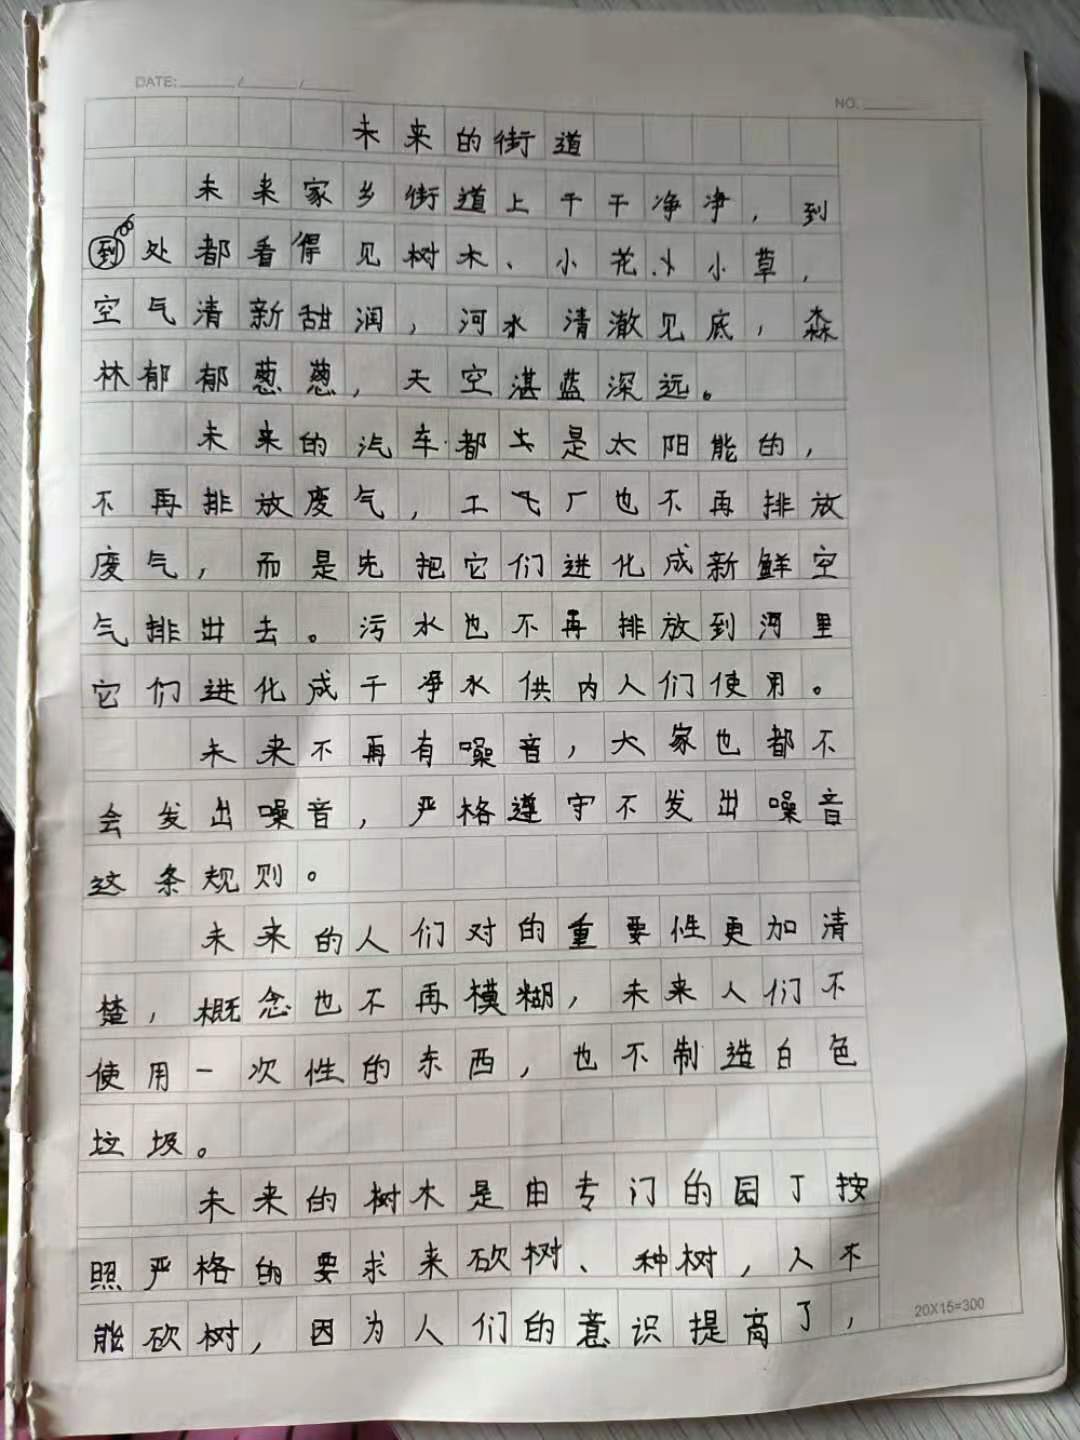 DATE: / /
NO.
未来的街道
未来家乡街道上干干净净，到
到处都看得见树木、小花、小草，
空气清新甜润，河水清澈见底，森
林郁郁葱葱，天空湛蓝深远。
未来的汽车都是太阳能的，
不再排放废气，工厂也不再排放
废气，而是先把它们进化成新鲜空
气排出去。污水也不再排放到河里
它们进化成干净水供内人们使用。
未来不再有噪音，大家也都不
会发出噪音，严格遵守不发出噪音
这条规则。
未来的人们对的重要性更加清
楚，概念也不再模糊，未来人们不
使用一次性的东西，也不制造白色
垃圾。
未来的树木是由专门的园丁按
照严格的要求来砍树、种树，人不
能砍树，因为人们的意识提高了，
20X15=300